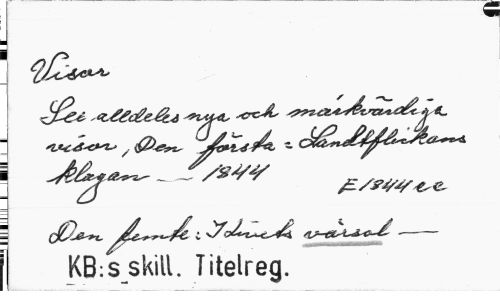 Visor
Sex alldeles nya och märkvärdiga
visor, Den första = Landtflickans
klagan — 1844
E 1844 cc
Den femte: I livets vårsol —
KB:s skill. Titelreg.